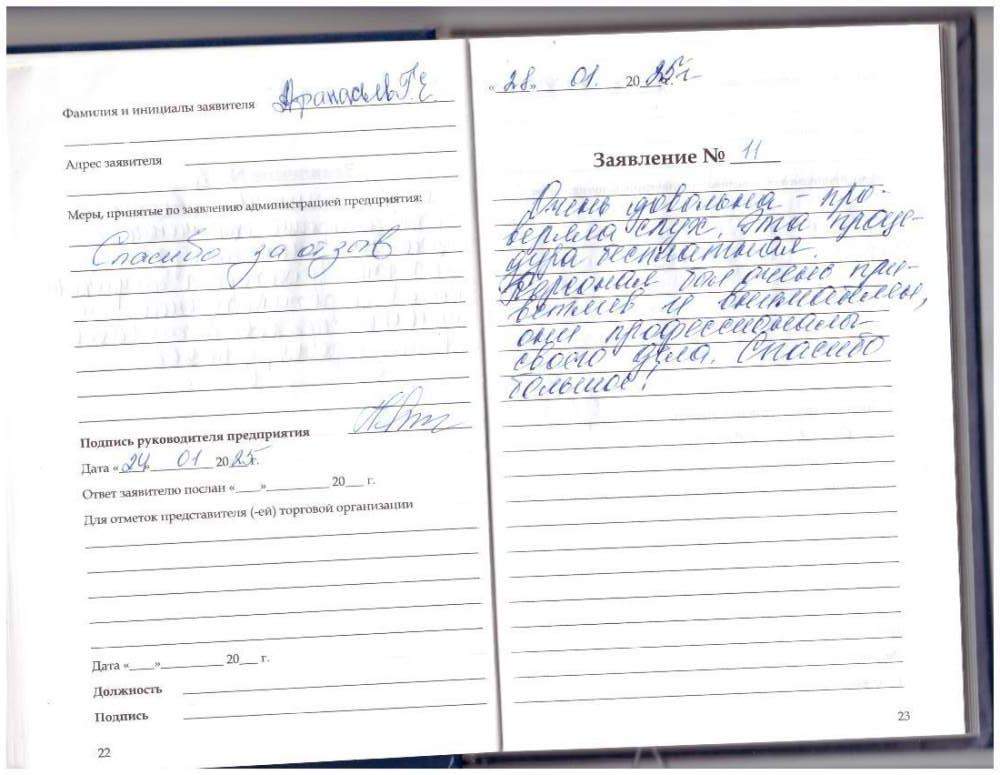 Фамилия и инициалы заявителя Афанасьев Г.Е.
Адрес заявителя
Меры, принятые по заявлению администрацией предприятия:
Спасибо за отзыв
Подпись руководителя предприятия
Дата «24» 01 2025г.
Ответ заявителю послан «___»__________ 20___ г.
Для отметок представителя (-ей) торговой организации
Дата «____»__________ 20___ г.
Должность
Подпись
22
«28» 01. 2025г.
Заявление № 11
Очень довольна – про-
веряла слух. Эта проце-
дура бесплатная.
Персонал был очень при-
ветлив и внимателен,
они профессионалы
своего дела. Спасибо
большое!
23